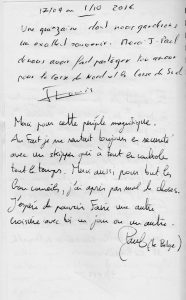 17/09 au 1/10 2016
Une quinzaine dont nous garderons
un excellent souvenir. Merci J-Paul
de nous avoir fait partager ton amour
pour la Corse du Nord et la Corse du Sud
Merci pour cette périple magnifique.
Au fait je me sentait toujours en securité
avec un skipper qui a tout en controle
tout le temps. Merci aussi pour tout les
bon conseils, j'ai après pas mal de choses.
J'espère de pouvoir faire une autre
croisière avec toi un jour ou un autre.
Paul (le Belge)